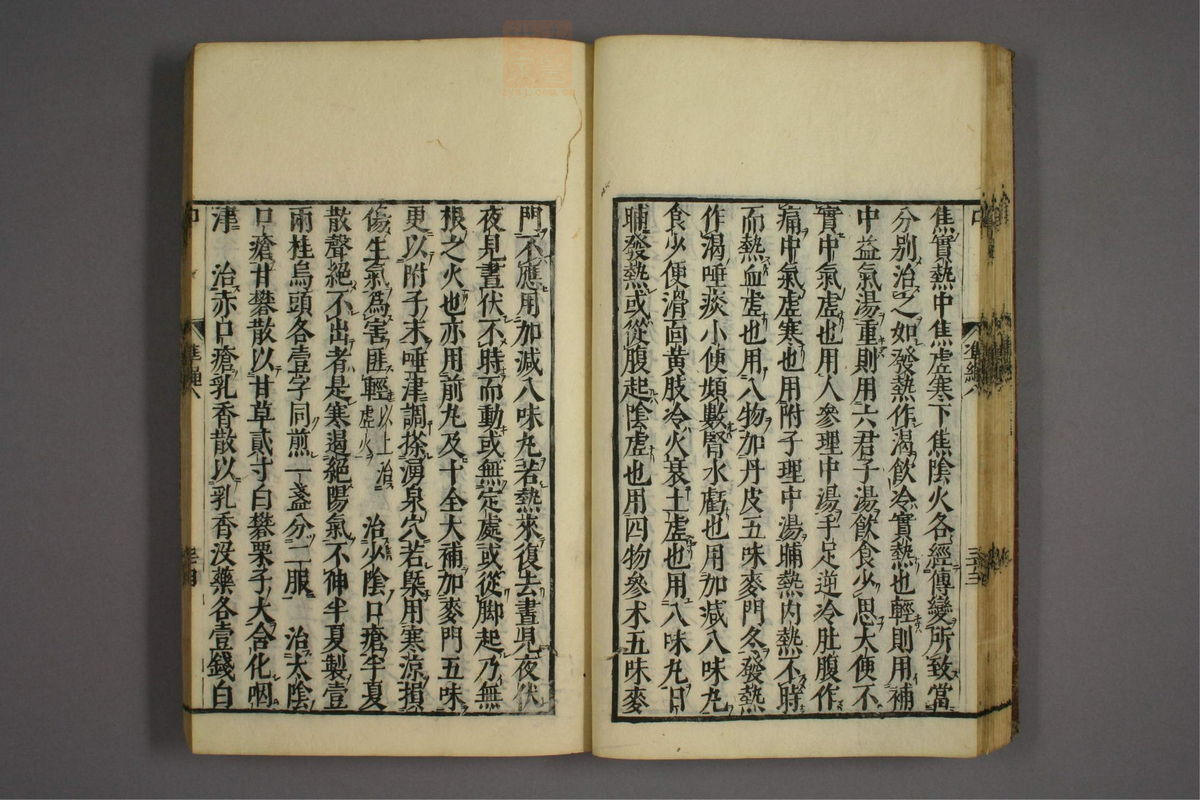 焦實熱中焦虛寒下焦陰火各經傳變所致當
分別治之如發熱作渴飲冷實熱也輕則用補
中益氣湯重則用六君子湯飲食少思大便不
實中氣虛也用人參理中湯手足逆冷肚腹作
痛中氣虛寒也用附子理中湯晡熱內熱不時
而熱血虛也用八物加丹皮五味麥門冬發熱
作渴唾痰小便頻數腎水虧也用加減八味丸
食少便滑面黃肢冷火衰土虛也用八味丸日
晡發熱或從腹起陰虛也用四物參术五味麥
門不應用加減八味丸若熱來復去晝見夜伏
夜見晝伏不時而動或無定處或從脚起乃無
根之火也亦用前丸及十全大補加麥門五味
更以附子末唾津調搽湧泉穴若槩用寒涼損
傷生氣爲害匪輕以上治虛火 治少陰口瘡半夏
散聲絕不出者是寒遏絕陽氣不伸半夏製壹
兩桂烏頭各壹字同煎一盞分二服 治太陰
口瘡甘礬散以甘草貳寸白礬栗子大含化咽
津 治赤口瘡乳香散以乳香沒藥各壹錢白